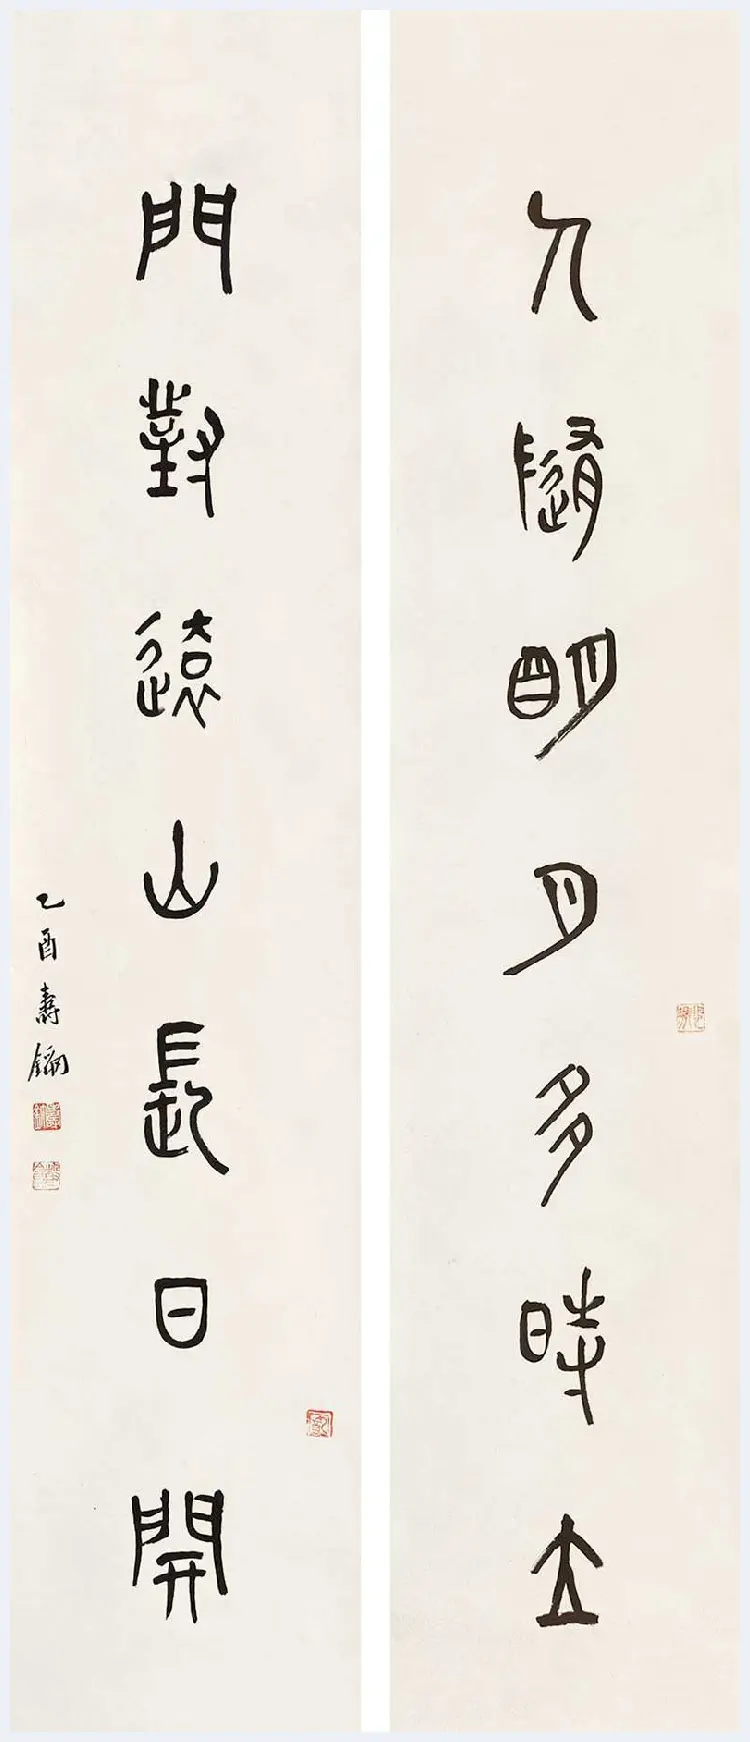 人隨明月多時立
門對遠山長日開
乙酉壽